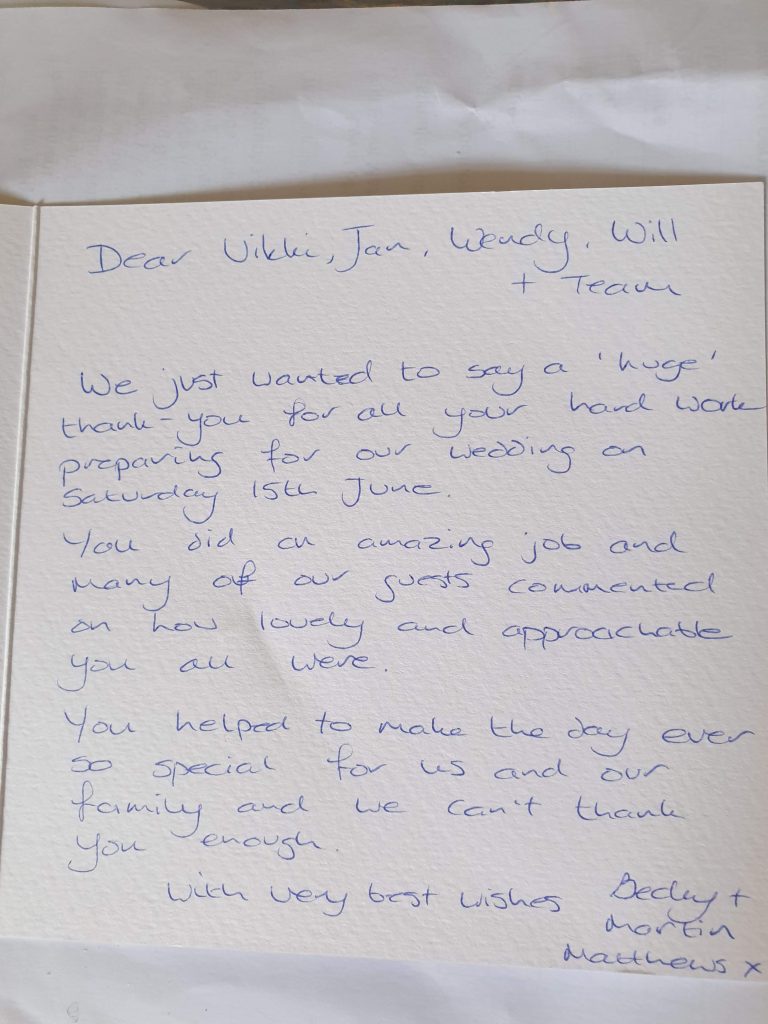 Dear Vikki, Jan, Wendy, Will
+ Team
We just wanted to say a 'huge'
thank-you for all your hard work
preparing for our wedding on
Saturday 15th June.
You did an amazing job and
many of our guests commented
on how lovely and approachable
you all were.
You helped to make the day ever
so special for us and our
family and we can't thank
you enough.
With very best wishes Becky +
Martin
Matthews x